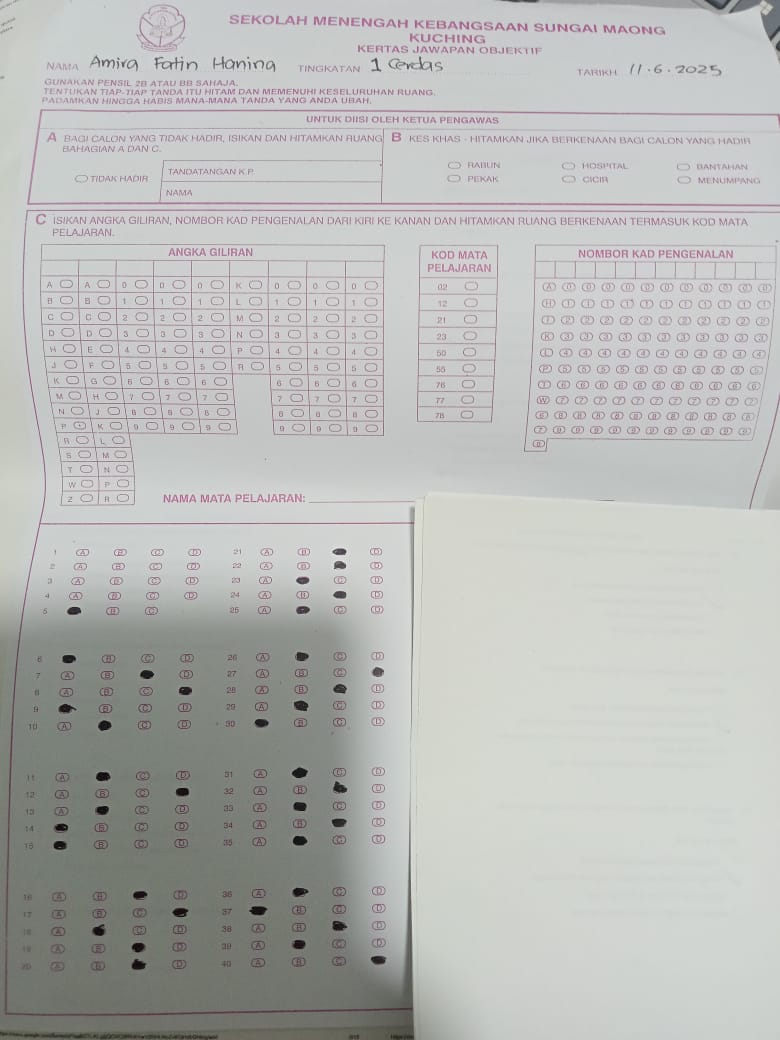 SEKOLAH MENENGAH KEBANGSAAN SUNGAI MAONG
KUCHING
KERTAS JAWAPAN OBJEKTIF
NAMA Amira Fatin Hanina TINGKATAN 1 Cerdas TARIKH 11.6.2025
GUNAKAN PENSIL 2B ATAU BB SAHAJA.
TENTUKAN TIAP-TIAP TANDA ITU HITAM DAN MEMENUHI KESELURUHAN RUANG.
PADAMKAN HINGGA HABIS MANA-MANA TANDA YANG ANDA UBAH.
UNTUK DIISI OLEH KETUA PENGAWAS
A BAGI CALON YANG TIDAK HADIR, ISIKAN DAN HITAMKAN RUANG
BAHAGIAN A DAN C.
TIDAK HADIR
TANDATANGAN K.P.
NAMA
B KES KHAS - HITAMKAN JIKA BERKENAAN BAGI CALON YANG HADIR
RABUN HOSPITAL BANTAHAN
PEKAK CICIR MENUMPANG
C ISIKAN ANGKA GILIRAN, NOMBOR KAD PENGENALAN DARI KIRI KE KANAN DAN HITAMKAN RUANG BERKENAAN TERMASUK KOD MATA
PELAJARAN.
ANGKA GILIRAN
A A 0 0 0 K 0 0 0
B B 1 1 1 L 1 1 1
C C 2 2 2 M 2 2 2
D D 3 3 3 N 3 3 3
H E 4 4 4 P 4 4 4
J F 5 5 5 R 5 5 5
K G 6 6 6 6 6 6
M H 7 7 7 7 7 7
N J 8 8 8 8 8 8
P K 9 9 9 9 9 9
R L
S M
T N
W P
Z R
KOD MATA
PELAJARAN
02
12
21
23
50
55
76
77
78
NOMBOR KAD PENGENALAN
A 0 0 0 0 0 0 0 0 0 0 0
H 1 1 1 1 1 1 1 1 1 1 1
I 2 2 2 2 2 2 2 2 2 2 2
K 3 3 3 3 3 3 3 3 3 3 3
L 4 4 4 4 4 4 4 4 4 4 4
P 5 5 5 5 5 5 5 5 5 5 5
T 6 6 6 6 6 6 6 6 6 6 6
W 7 7 7 7 7 7 7 7 7 7 7
8 8 8 8 8 8 8 8 8 8
9 9 9 9 9 9 9 9 9 9
NAMA MATA PELAJARAN:
1 A B C D 21 A B D
2 A B C D 22 A B D
3 A B C D 23 A C D
4 A B C D 24 A B D
5 B C 25 A C D
6 B C D 26 A C D
7 A B D 27 A B C
8 A B C 28 A B D
9 B C D 29 A C D
10 A C D 30 B C D
11 A C D 31 A C D
12 A B C 32 A B D
13 A C D 33 A C D
14 B C D 34 A B D
15 B C D 35 A C D
16 A B D 36 A C D
17 A B C 37 B C D
18 A C D 38 A B D
19 A B D 39 A C D
20 A B D 40 A B C